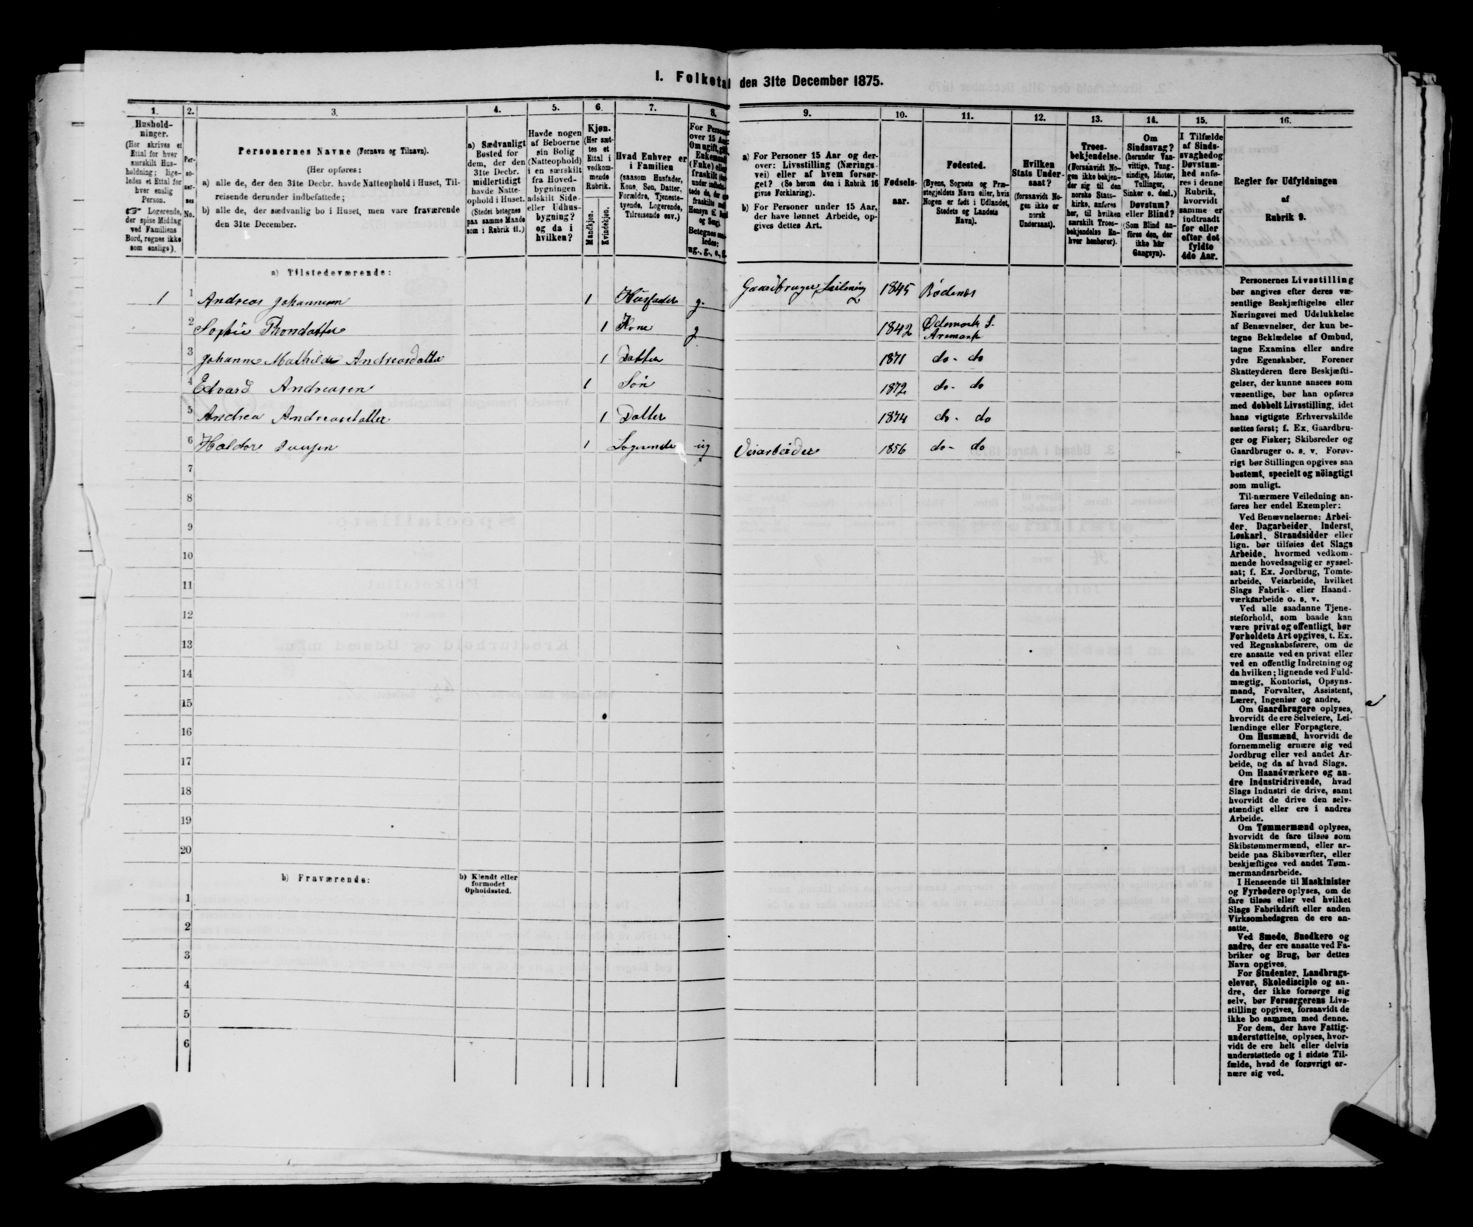 I. Folketal den 31te December 1875.
1.
Hushold-
ninger.
(Her skrives et
Ettal for hver
særskilt Hus-
holdning; lige-
ledes et Ettal for
hver enslig
Person.
Logerende,
der spise Middag
ved Familiens
Bord, regnes ikke
som enslige).
2.
Per-
so-
ner-
nes
No.
3.
Personernes Navne (Fornavn og Tilnavn).
(Her opføres:
a) alle de, der den 31te Decbr. havde Natteophold i Huset, Til-
reisende derunder indbefattede;
b) alle de, der sædvanlig bo i Huset, men vare fraværende
den 31te December.
4.
a) Sædvanligt
Bosted for
dem, der den
31te Decbr.
midlertidigt
havde Natte-
ophold i Huset.
(Stedet betegnes
paa samme Maade
som i Rubrik 11.)
5.
Havde nogen
af Beboerne
sin Bolig
(Natteophold)
i en særskilt
fra Hoved-
bygningen
adskilt Side-
eller Udhus-
bygning?
og da i
hvilken?
6.
Kjøn.
(Her sæt-
tes et
Ettal i
vedkom-
mende
Rubrik.
Mandkjøn.
Kvindekjøn.
7.
Hvad Enhver er
i Familien
(saasom Husfader,
Kone, Søn, Datter,
Forældre, Tjeneste-
tyende, Logerende,
Tilreisende osv.)
8.
For Person
over 15 Aar:
Om ugift, gift,
Enkemand
(Enke) eller
fraskilt
9.
a) For Personer 15 Aar og der-
over: Livsstilling (Nærings-
vei) eller af hvem forsør-
get? (Se herom den i Rubrik 16
givne Forklaring).
b) For Personer under 15 Aar,
der have lønnet Arbeide, op-
gives dettes Art.
10.
Fødsels-
aar.
11.
Fødested.
(Byens, Sognets og Præ-
stegjeldets Navn eller, hvis
Nogen er født i Udlandet,
Stedets og Landets
Navn).
12.
Hvilken
Stats Under-
saat?
(forsaavidt No-
gen ikke er
norsk
Undersaat).
13.
Troes-
bekjendelse.
(Forsaavidt No-
gen ikke bekjen-
der sig til den
norske Stats-
kirke, anføres
her, til hvilken
særskilt Troes-
bekjendelse En-
hver henhører).
14.
Om
Sindssvag?
(herunder Van-
vittige, Tung-
sindige, Idioter,
Tullinger,
Sinker o. desl.)
Døvstum?
eller Blind?
(Som Blind an-
føres den, der
ikke har
Gangsyn).
15.
I Tilfælde
af Sinds-
svaghed og
Døvstum-
hed anfø-
res i denne
Rubrik,
hvorvidt
samme er
indtraadt
før eller
efter det
fyldte
4de Aar.
16.
Regler for Udfyldningen
af
Rubrik 9.
a) Tilstedeværende:
1 1 Andreas Johannesen 1 Husfader g. Gaardbruger Leilening 1845 Rødenes
2 Sophie Thorsdatter 1 Kone g 1842 Ødemark S.
Aremark
3 Johanne Mathilde Andreasdatter 1 Datter 1871 do - do
4 Edvard Andreasen 1 Søn 1872 do - do
5 Andrea Andreasdatter 1 Datter 1874 do - do
6 Haldor 1 Logerende ug Veiarbeider 1856 do - do
7
8
9
10
11
12
13
14
15
16
17
18
19
20
b) Fraværende:
b) Kjendt eller
formodet
Opholdssted.
1
2
3
4
5
6
Personernes Livsstilling
bør angives efter deres væ-
sentlige Beskjæftigelse eller
Næringsvei med Udelukkelse
af Benævnelser, der kun be-
tegne Beklædelse af Ombud,
tagne Examina eller andre
ydre Egenskaber. Forener
Skatteyderen flere Beskjæfti-
gelser, der kunne ansees som
væsentlige, bør han opføres
med dobbelt Livsstilling, idet
hans vigtigste Erhvervskilde
sættes først; f. Ex. Gaardbru-
ger og Fisker; Skibsreder og
Gaardbruger o. s. v. Forøv-
rigt bør Stillingen opgives saa
bestemt, specielt og nøiagtigt
som muligt.
Til nærmere Veiledning an-
føres her endel Exempler:
Ved Benævnelserne: Arbei-
der, Dagarbeider, Inderst,
Løskarl, Strandsidder eller
lign. bør tilføies det Slags
Arbeide, hvormed vedkom-
mende hovedsagelig er syssel-
sat; f. Ex. Jordbrug, Tomte-
arbeide, Veiarbeide, hvilket
Slags Fabrik- eller Haand-
værksarbeide o. s. v.
Ved alle saadanne Tjene-
steforhold, som baade kan
være privat og offentligt, bør
Forholdets Art opgives, t. Ex.
ved Regnskabsførere, om de
ere ansatte ved en privat eller
ved en offentlig Indretning og
da hvilken; lignende ved Fuld-
mægtig, Kontorist, Opsyns-
mand, Forvalter, Assistent,
Lærer, Ingeniør og andre.
Om Gaardbrugere oplyses,
hvorvidt de ere Selveiere, Lei-
lændinge eller Forpagtere.
Om Husmænd, hvorvidt de
fornemmelig ernære sig ved
Jordbrug eller ved andet Ar-
beide, og da af hvad Slags.
Om Haandværkere og an-
dre Industridrivende, hvad
Slags Industri de drive, samt
hvorvidt de drive den selv-
stændigt eller ere i andres
Arbeide.
Om Tømmermænd oplyses,
hvorvidt de fare tilsøs som
Skibstømmermænd, eller ar-
beide paa Skibsværfter, eller
beskjæftiges ved andet Tøm-
mermandsarbeide.
I Henseende til Maskinister
og Fyrbødere oplyses, om de
fare tilsøs eller ved hvilket
Slags Fabrikdrift eller anden
Virksomhedsgren de ere an-
satte.
Ved Smede, Snedkere og
andre, der ere ansatte ved Fa-
briker og Brug, bør dettes
Navn opgives.
For Studenter, Landbrugs-
elever, Skoledisciple og an-
dre, der ikke forsørge sig
selv, bør Forsørgerens Livs-
stilling opgives, forsaavidt de
ikke bo sammen med denne.
For dem, der have Fattig-
understøttelse, oplyses, hvor-
vidt de ere helt eller delvis
understøttede og i sidste Til-
fælde, hvad de forøvrigt er-
nære sig ved.